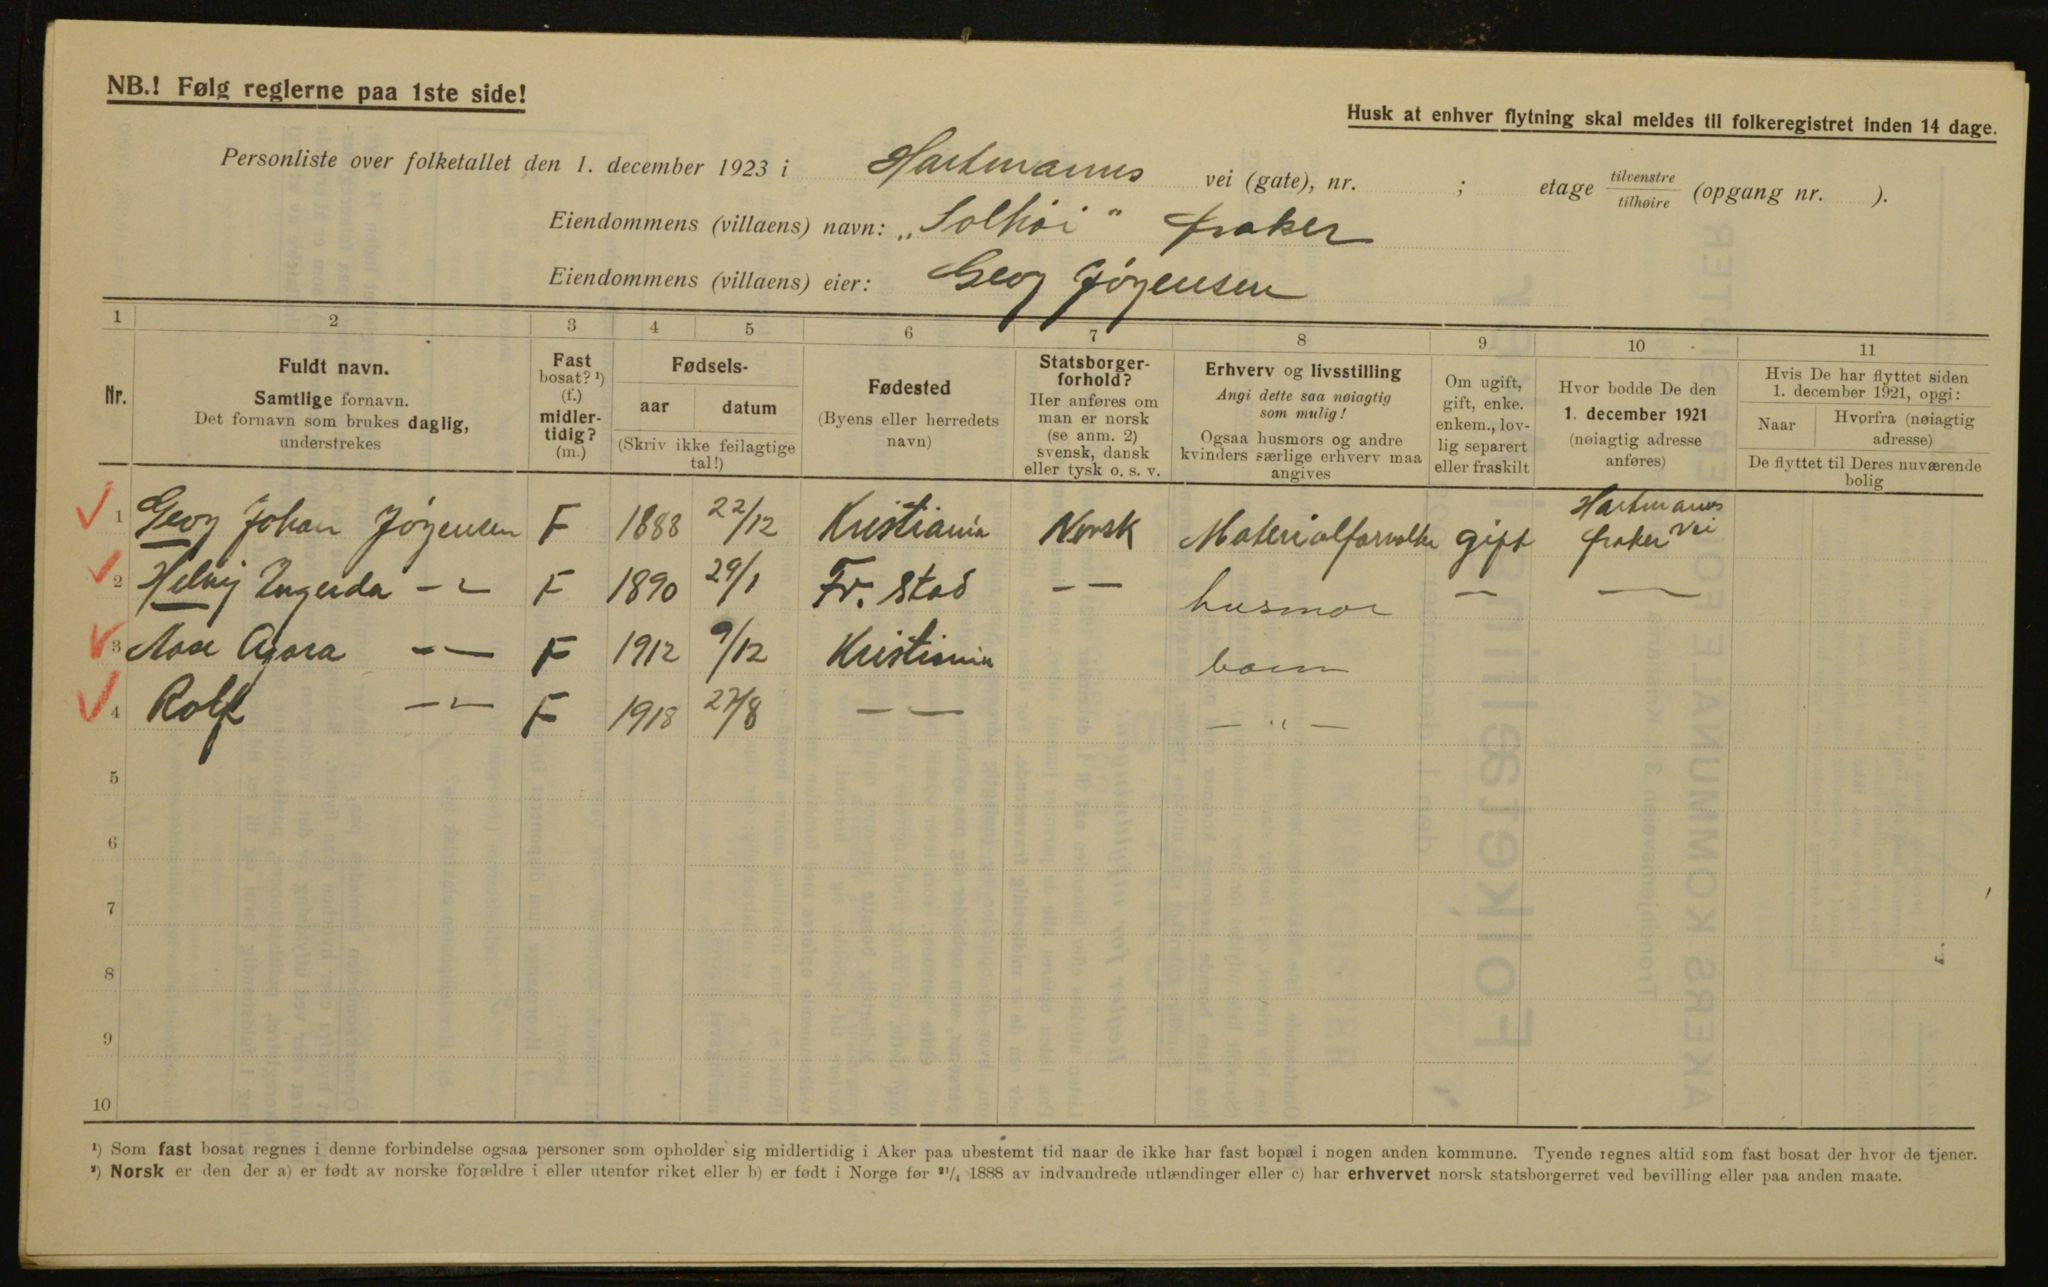 NB.! Følg reglerne paa 1ste side!
Husk at enhver flytning skal meldes til folkeregistret inden 14 dage.
Personliste over folketallet den 1. december 1923 i Hartmanns vei (gate), nr. ; etage tilvenstre/tilhøire (opgang nr. ).
Eiendommens (villaens) navn: „Solhøi"
Eiendommens (villaens) eier: Georg Jörgensen
1 2 3 4 5 6 7 8 9 10 11
Nr.
Fuldt navn.
Samtlige fornavn.
Det fornavn som brukes daglig,
understrekes
Fast
bosat? ¹)
(f.)
midler-
tidig?
(m.)
Fødsels-
aar datum
(Skriv ikke feilagtige
tal!)
Fødested
(Byens eller herredets
navn)
Statsborger-
forhold?
Her anføres om
man er norsk
(se anm. 2)
svensk, dansk
eller tysk o. s. v.
Erhverv og livsstilling
Angi dette saa nøiagtig
som mulig!
Ogsaa husmors og andre
kvinders særlige erhverv maa
angives
Om ugift,
gift, enke.
enkem., lov-
lig separert
eller fraskilt
Hvor bodde De den
1. december 1921
(nøiagtig adresse
anføres)
Hvis De har flyttet siden
1. december 1921, opgi:
Naar Hvorfra (nøiagtig
adresse)
De flyttet til Deres nuværende
bolig
1 Georg Johan Jörgensen F 1888 22/12 Kristiania Norsk Materialforvalter gift Hartmanns vei
2 Helvig Ingerda — „ — F 1890 29/1 Fr. stad — — husmor — —
3 Aase Agora — — F 1912 9/12 Kristiania barn
4 Rolf — „ — F 1918 27/8 — — — „ —
5
6
7
8
9
10
¹) Som fast bosat regnes i denne forbindelse ogsaa personer som opholder sig midlertidig i Aker paa ubestemt tid naar de ikke har fast bopæl i nogen anden kommune. Tyende regnes altid som fast bosat der hvor de tjener.
²) Norsk er den der a) er født av norske forældre i eller utenfor riket eller b) er født i Norge før ²¹/₄ 1888 av indvandrede utlændinger eller c) har erhvervet norsk statsborgerret ved bevilling eller paa anden maate.